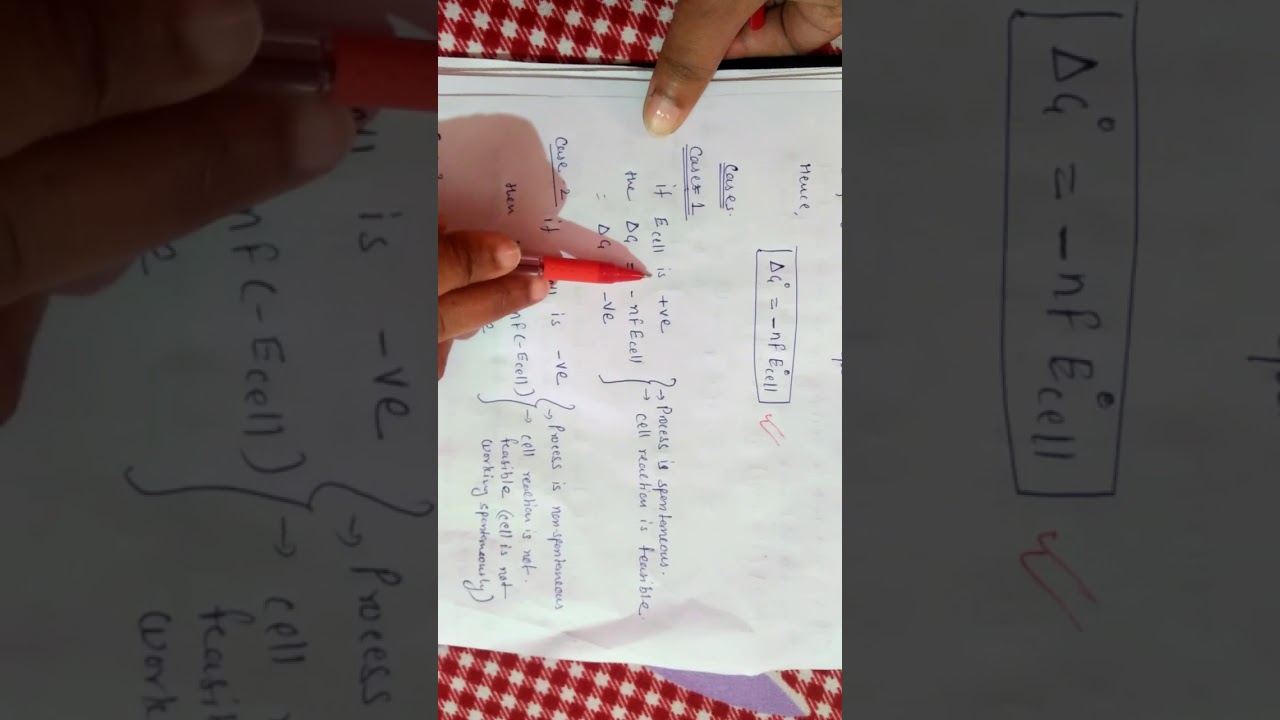 Hence,
ΔG° = -nF E°cell
Cases.
Case 1
if Ecell is +ve
the ΔG = -nFEcell
: ΔG -ve
→ Process is spontaneous.
→ cell reaction is feasible.
Case 2 if is -ve
then nF(-Ecell)
→ Process is non-spontaneous
→ cell reaction is not.
feasible (cell is not
working spontaneously)